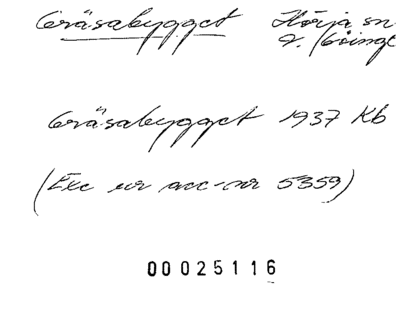 Gräsabygget Hörja sn
V. Göinge
Gräsabygget 1937 Kb
(Exc ur acc-nr 5359)
00 025116